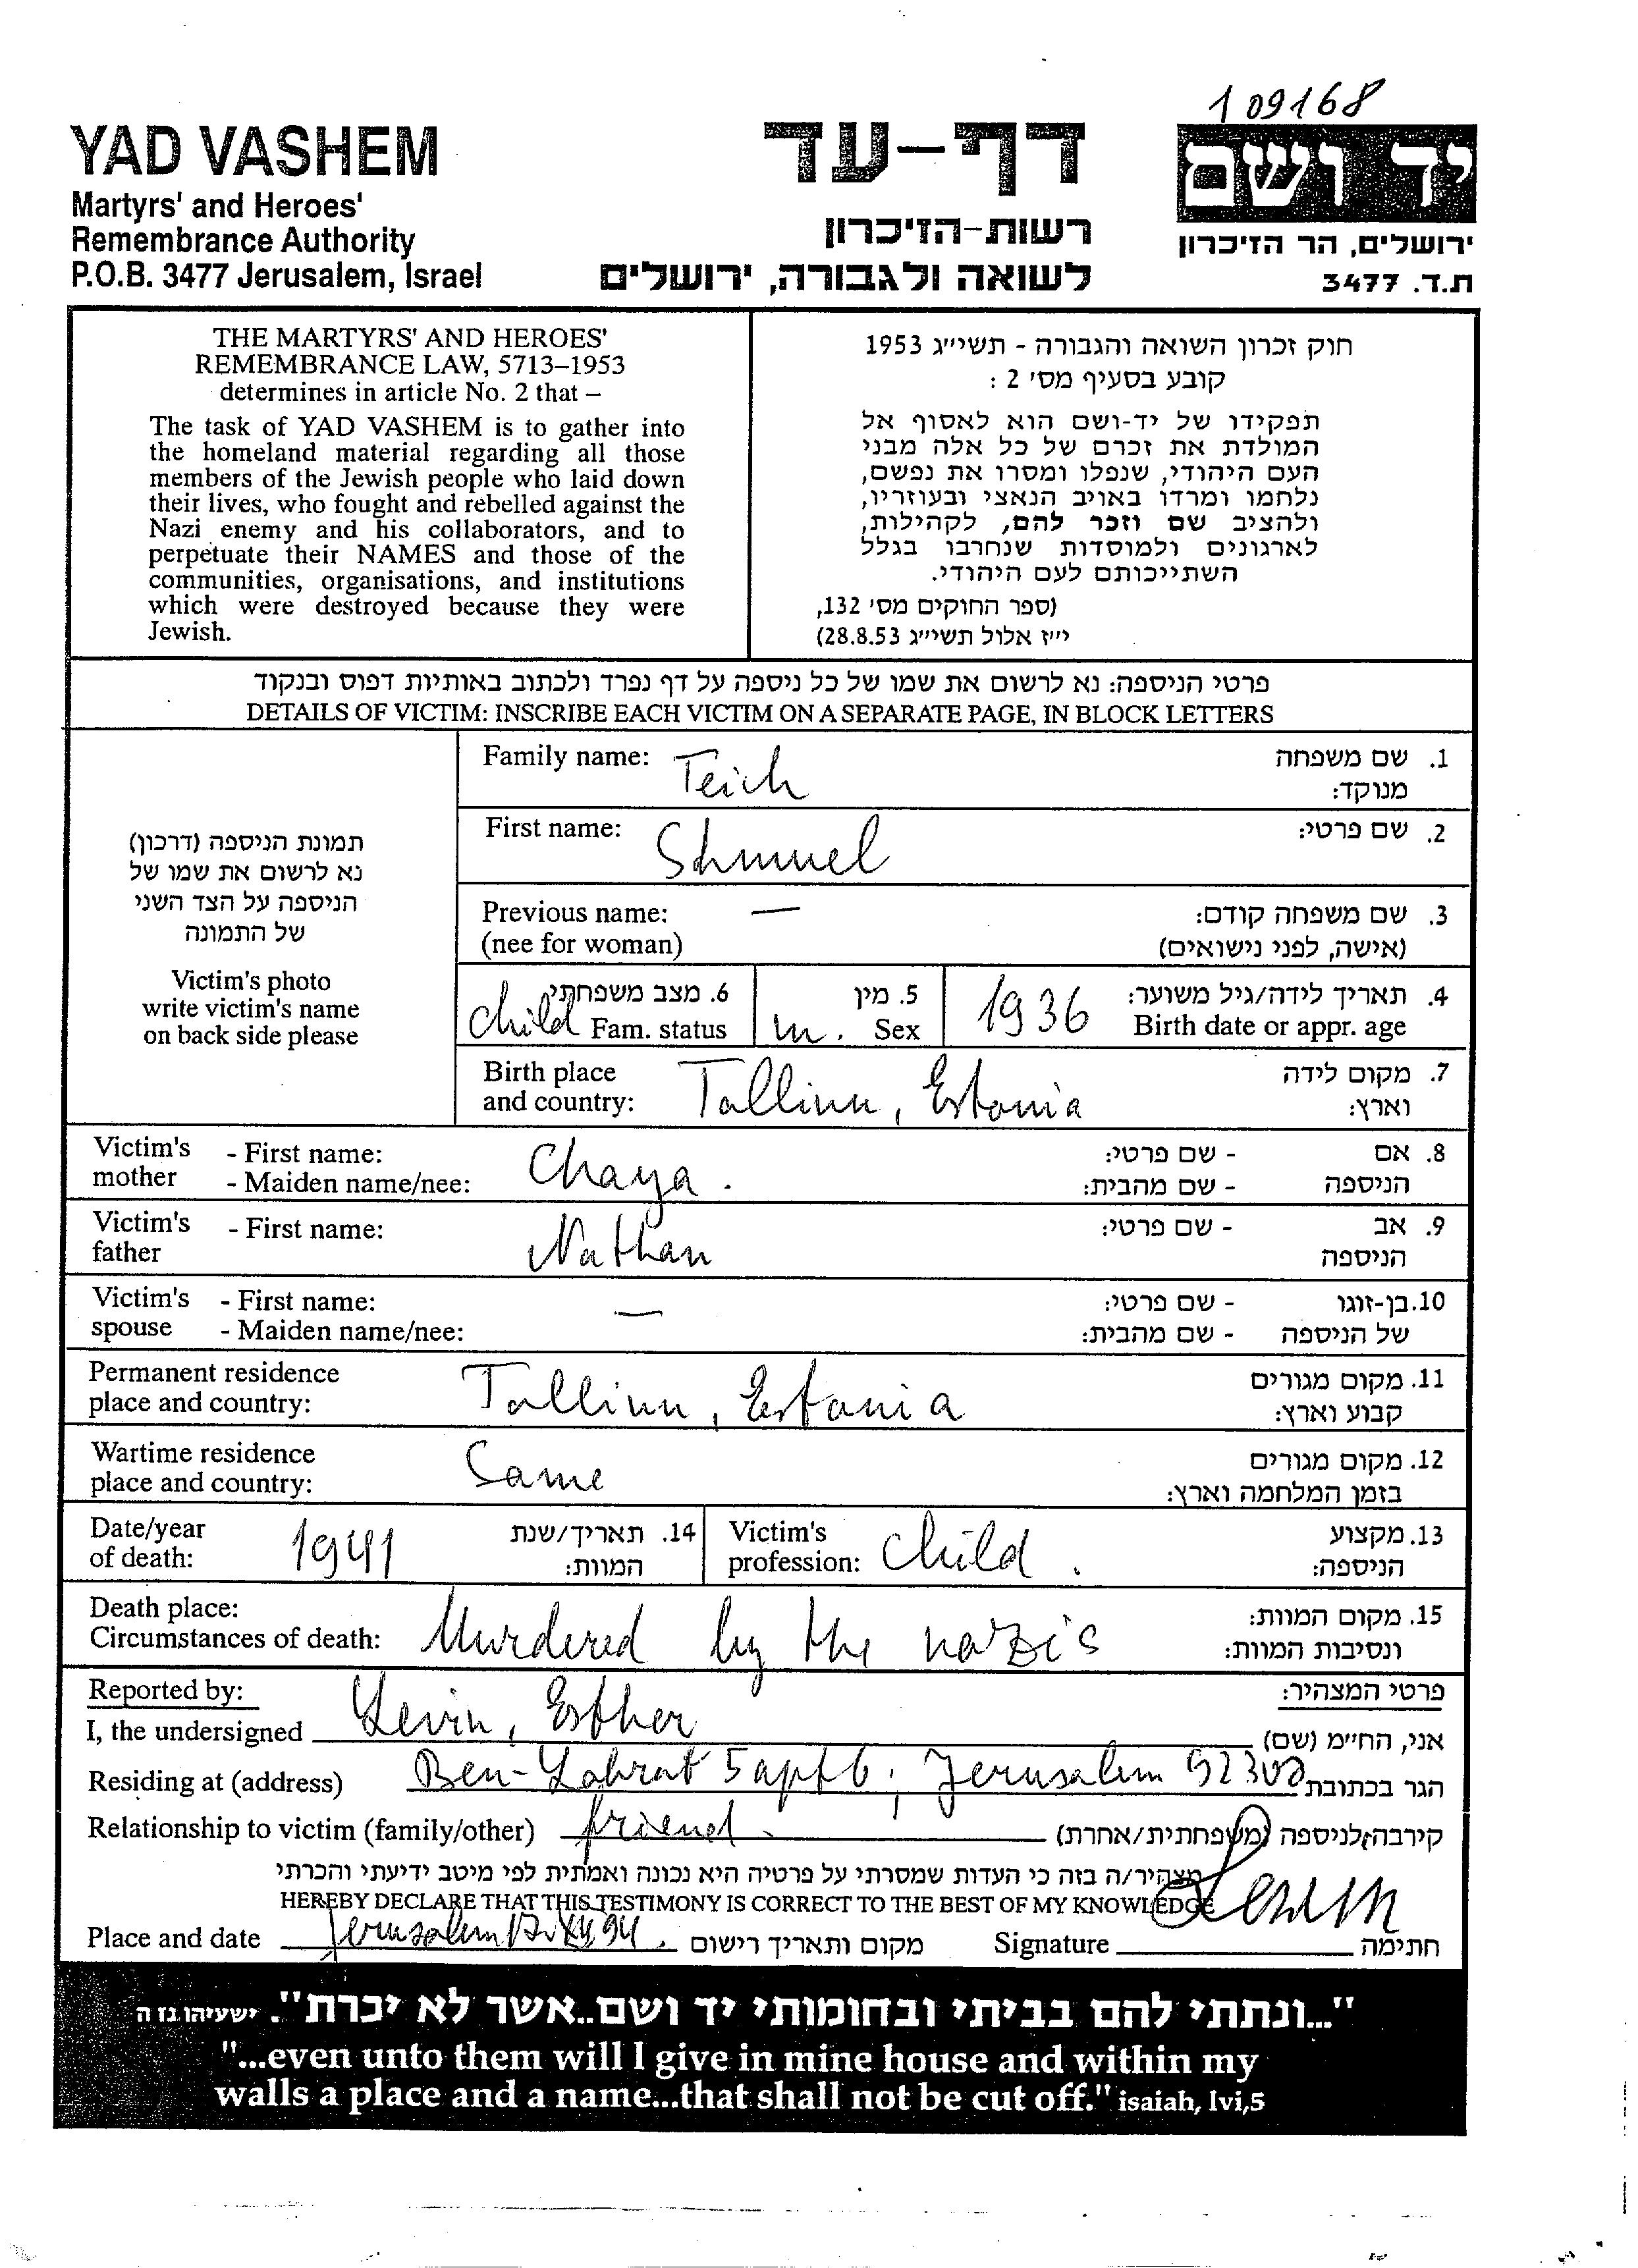 109168
YAD VASHEM
Martyrs' and Heroes'
Remembrance Authority
P.O.B. 3477 Jerusalem, Israel
דף-עד
רשות-הזיכרון
לשואה ולגבורה, ירושלים
יד ושם
ירושלים, הר הזיכרון
ת.ד. 3477
THE MARTYRS' AND HEROES'
REMEMBRANCE LAW, 5713–1953
determines in article No. 2 that –
The task of YAD VASHEM is to gather into
the homeland material regarding all those
members of the Jewish people who laid down
their lives, who fought and rebelled against the
Nazi enemy and his collaborators, and to
perpetuate their NAMES and those of the
communities, organisations, and institutions
which were destroyed because they were
Jewish.
חוק זכרון השואה והגבורה - תשי״ג 1953
קובע בסעיף מס׳ 2 :
תפקידו של יד-ושם הוא לאסוף אל
המולדת את זכרם של כל אלה מבני
העם היהודי, שנפלו ומסרו את נפשם,
נלחמו ומרדו באויב הנאצי ובעוזריו,
ולהציב שם וזכר להם, לקהילות,
לארגונים ולמוסדות שנחרבו בגלל
השתייכותם לעם היהודי.
(ספר החוקים מס׳ 132,
י״ז אלול תשי״ג 28.8.53)
פרטי הניספה: נא לרשום את שמו של כל ניספה על דף נפרד ולכתוב באותיות דפוס ובנקוד
DETAILS OF VICTIM: INSCRIBE EACH VICTIM ON A SEPARATE PAGE, IN BLOCK LETTERS
תמונת הניספה (דרכון)
נא לרשום את שמו של
הניספה על הצד השני
של התמונה
Victim's photo
write victim's name
on back side please
Family name: Teich 1. שם משפחה
מנוקד:
First name: Shmuel 2. שם פרטי:
Previous name: — 3. שם משפחה קודם:
(nee for woman) (אישה, לפני נישואים)
child 6. מצב משפחתי m. 5. מין 1936 4. תאריך לידה/גיל משוער:
Fam. status Sex Birth date or appr. age
Birth place Tallinn, Estonia 7. מקום לידה
and country: וארץ:
Victim's - First name: Chaya. - שם פרטי: 8. אם
mother - Maiden name/nee: - שם מהבית: הניספה
Victim's - First name: Nathan - שם פרטי: 9. אב
father הניספה
Victim's - First name: — - שם פרטי: 10. בן-זוגו
spouse - Maiden name/nee: - שם מהבית: של הניספה
Permanent residence Tallinn, Estonia 11. מקום מגורים
place and country: קבוע וארץ:
Wartime residence Same 12. מקום מגורים
place and country: בזמן המלחמה וארץ:
Date/year 1941 14. תאריך/שנת Victim's child. 13. מקצוע
of death: המוות: profession: הניספה:
Death place: 15. מקום המוות:
Circumstances of death: Murdered by the nazis ונסיבות המוות:
Reported by: פרטי המצהיר:
I, the undersigned Levin, Esther אני, החי״מ (שם)
Residing at (address) Ben-Labrat 5 apt 6, Jerusalem 92308 הגר בכתובת
Relationship to victim (family/other) friend. קירבה לניספה (משפחתית/אחרת)
מצהיר/ה בזה כי העדות שמסרתי על פרטיה היא נכונה ואמתית לפי מיטב ידיעתי והכרתי
HEREBY DECLARE THAT THIS TESTIMONY IS CORRECT TO THE BEST OF MY KNOWLEDGE
Place and date Jerusalem מקום ותאריך רישום Signature Levin חתימה
"...ונתתי להם בביתי ובחומותי יד ושם..אשר לא יכרת". ישעיהו נז ה
"...even unto them will I give in mine house and within my
walls a place and a name...that shall not be cut off." isaiah, lvi,5